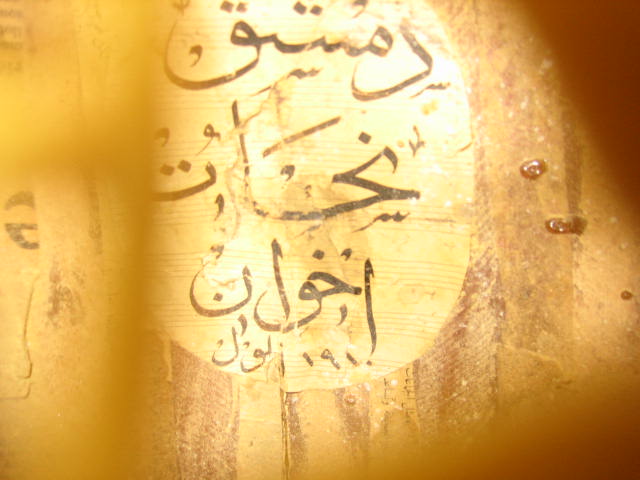 دمشق
نحات
اخوان
١٩١٠ ايلول